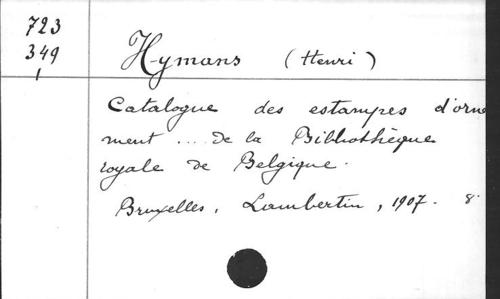 723
349
Hymans (Henri)
Catalogue des estampes d'orne
ment ... de la Bibliothèque
royale de Belgique.
Bruxelles, Lambertin, 1907. 8°